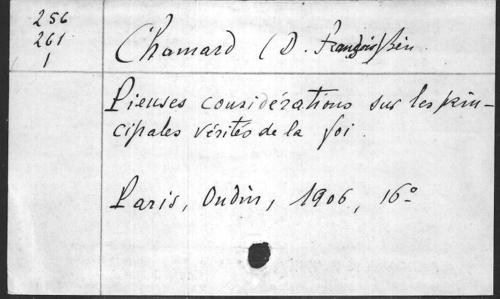 256
261
1
Chamard (D. François) Bén.
Pieuses considérations sur les prin-
cipales vérités de la foi.
Paris, Oudin, 1906, 16°